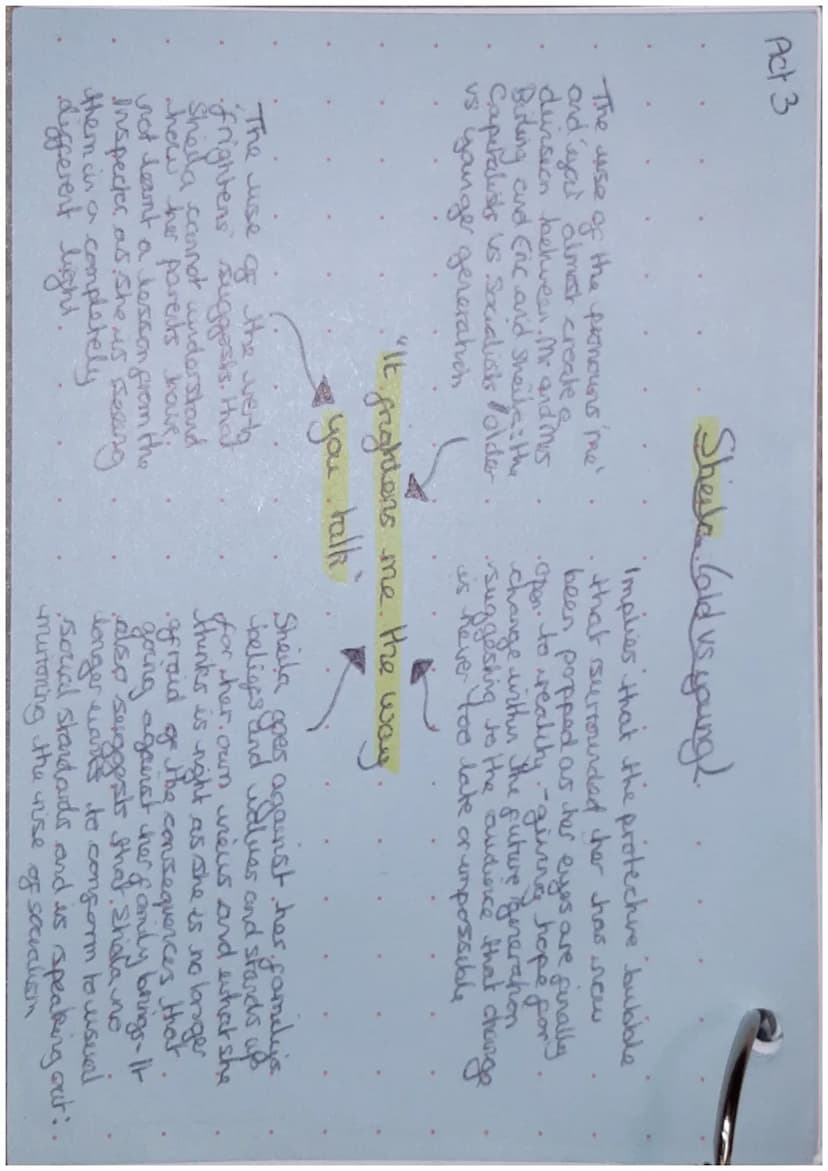 Act 3
Sheila (old vs young)
The use of the pronouns 'me'
and 'you' almost create a
division between Mr and Mrs
Birling and Eric and Sheila: the
Capitalists vs Socialists / older
vs younger generation
Implies that the protective bubble
that surrounded her has now
been popped as her eyes are finally
open to reality - giving hope for
change within the future generation
suggesting to the audience that change
is never too late or impossible
"It frightens me the way
you talk"
The use of the verb
'frightens' suggests that
Sheila cannot understand
how her parents have
not learnt a lesson from the
Inspector as she is seeing
them in a completely
different light
Sheila goes against her family's
beliefs and values and stands up
for her own views and what she
thinks is right as she is no longer
afraid of the consequences that
going against her family brings - It
also suggests that Sheila no
longer wants to conform to usual
social standards and is speaking out:
mirroring the rise of socialism